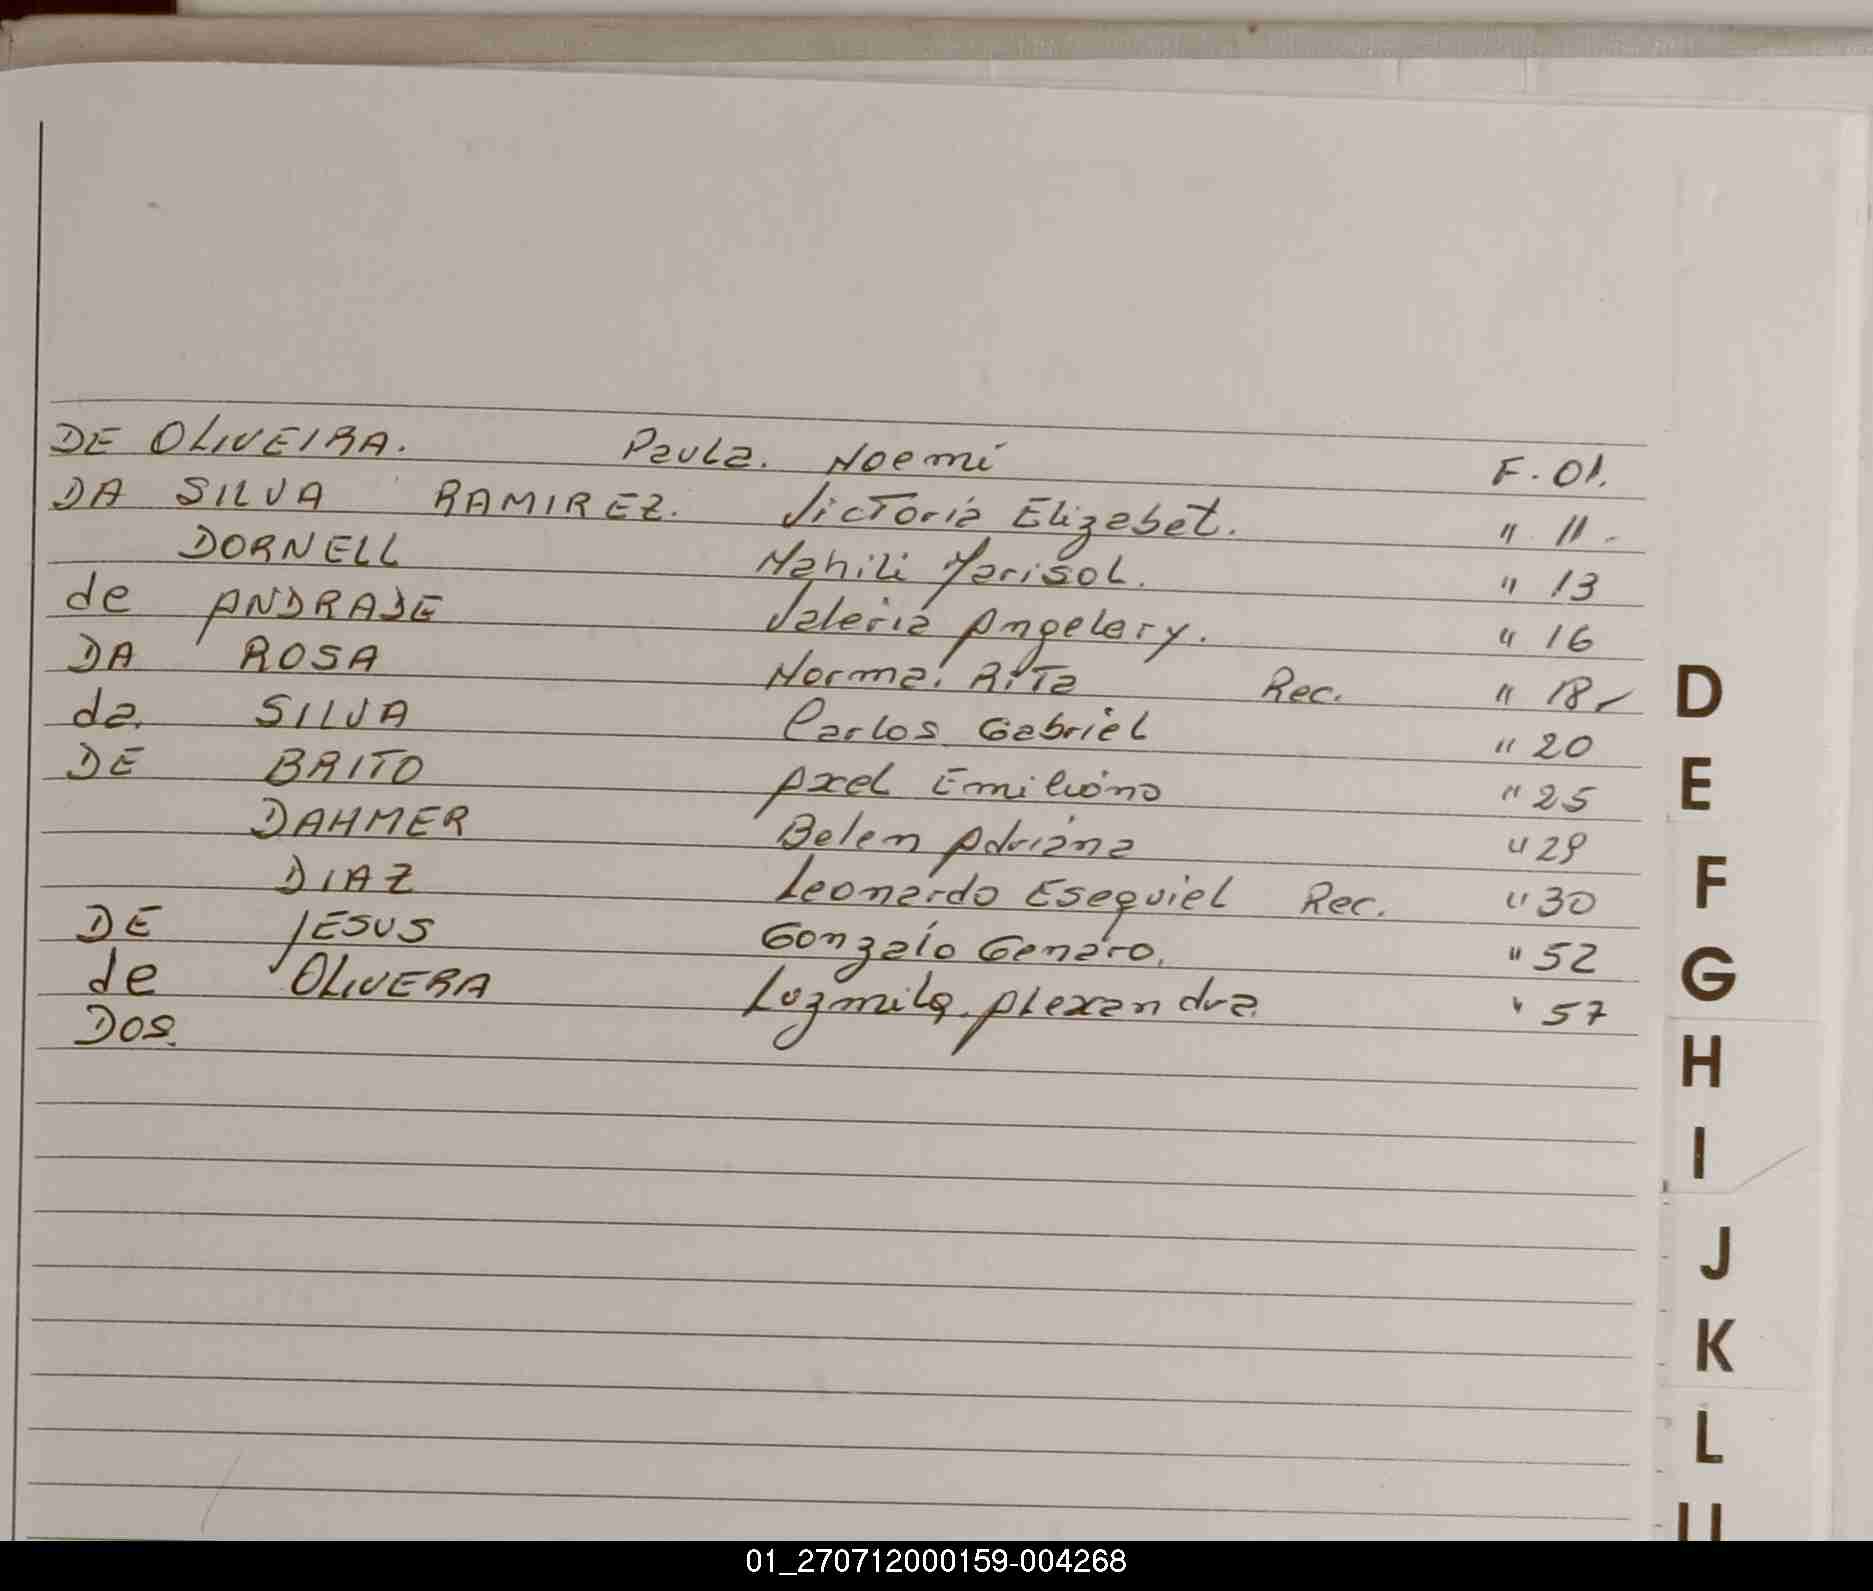 DE OLIVEIRA. Paula. Noemí F. 01.
DA SILVA RAMIREZ. Victoria Elizabet. " 11.
DORNELL Mahili Marisol. " 13
de ANDRADE Valeria Angelery. " 16
DA ROSA Norma. Rita Rec. " 18
da. SILVA Carlos Gabriel " 20
DE BRITO Axel Emiliano " 25
DAHMER Belen Adriana " 29
DIAZ Leonardo Esequiel Rec. " 30
DE JESUS Gonzalo Genaro. " 52
de OLIVERA Luzmila. Alexandra " 57
DOS.
D
E
F
G
H
I
J
K
L
01_270712000159-004268